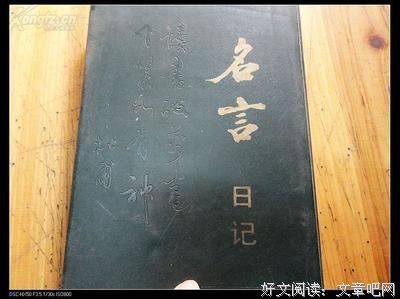 名言
日记
读书破万卷
下笔如有神
杜甫
DSC-HX50 F3.5 1/30s ISO800
好文阅读：文章吧网